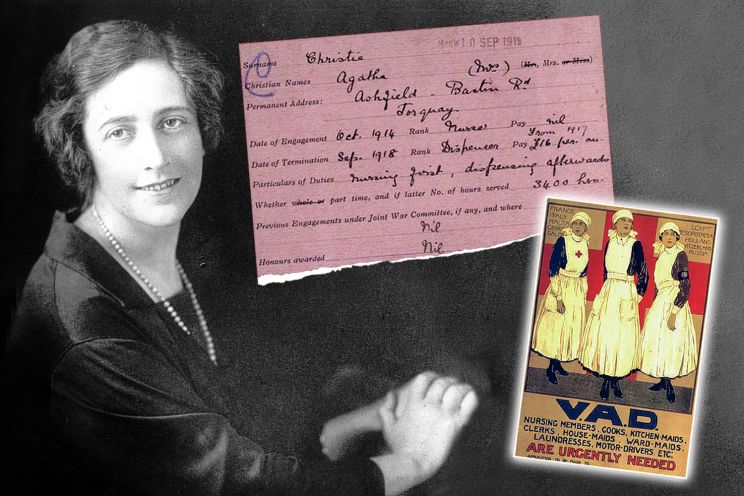 10 SEP 1919
Surname Christie
Christian Names Agatha (Mrs) (Mr, Mrs. or Miss)
Permanent Address: Ashfield - Barton Rd
Torquay.
Date of Engagement Oct. 1914 Rank Nurse Pay nil
From 1917
Date of Termination Sep. 1918 Rank Dispenser Pay £16 per. an.
Particulars of Duties nursing first, dispensing afterwards
Whether whole or part time, and if latter No. of hours served 3400 hrs.
Previous Engagements under Joint War Committee, if any, and where
Nil
Honours awarded Nil
FRANCE
ITALY
MALTA
EGYPT
MESOPOTAMIA
HOLLAND
SWITZERLAND
RUSSIA
V.A.D.
NURSING MEMBERS, COOKS, KITCHEN-MAIDS,
CLERKS, HOUSE-MAIDS, WARD-MAIDS,
LAUNDRESSES, MOTOR-DRIVERS, ETC.
ARE URGENTLY NEEDED
APPLICATION TO BE MADE TO